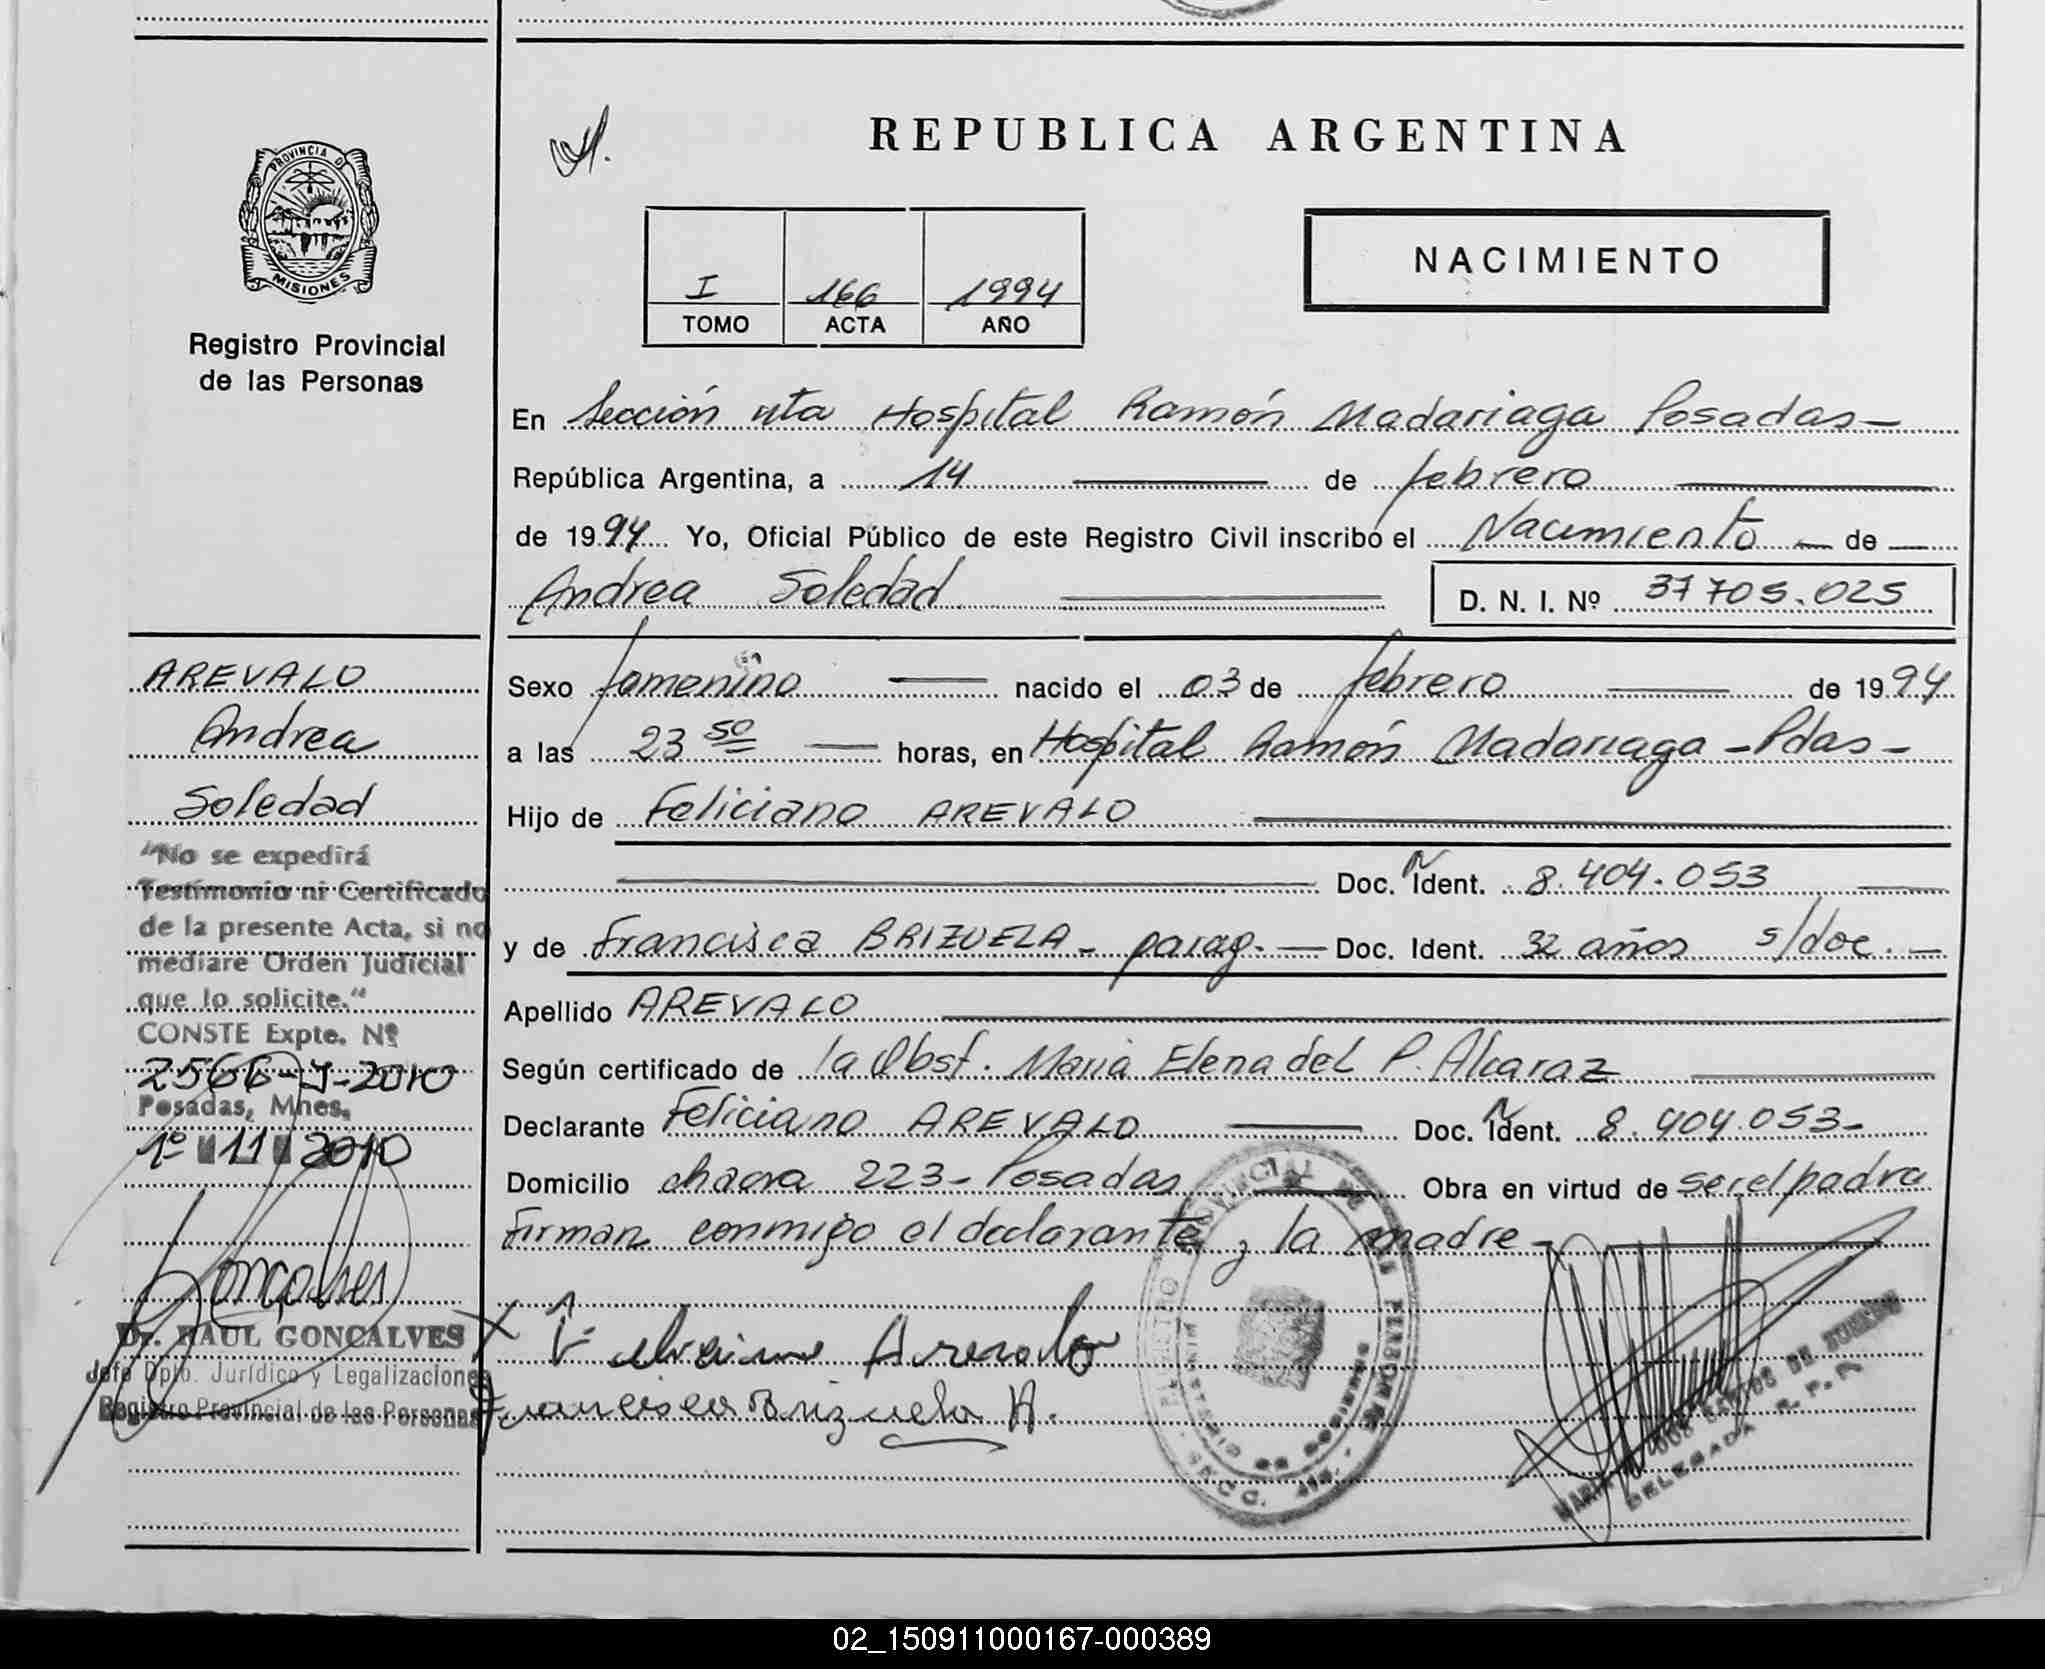 PROVINCIA DE
MISIONES
Registro Provincial
de las Personas
AREVALO
Andrea
Soledad
"No se expedirá
Testimonio ni Certificado
de la presente Acta, si no
mediare Orden Judicial
que lo solicite."
CONSTE Expte. Nº
2566-J-2010
Posadas, Mnes,
1º 11 2010
Goncalves
Dr. RAUL GONCALVES
Jefe Dpto. Jurídico y Legalizaciones
Registro Provincial de las Personas
REPUBLICA ARGENTINA
I 166 1994
TOMO ACTA AÑO
NACIMIENTO
En Sección 4ta Hospital Ramón Madariaga Posadas-
República Argentina, a 14 de febrero
de 1994 Yo, Oficial Público de este Registro Civil inscribo el Nacimiento de
Andrea Soledad D. N. I. Nº 37705.025
Sexo femenino nacido el 03 de febrero de 1994
a las 23 50 horas, en Hospital Ramón Madariaga - Pdas -
Hijo de Feliciano AREVALO
Doc. Ident. 8.404.053
y de Francisca BRIZUELA - parag. - Doc. Ident. 32 años s/doc. -
Apellido AREVALO
Según certificado de la Obst. Maria Elena del P. Alcaraz
Declarante Feliciano AREVALO Doc. Ident. 8.404.053-
Domicilio chacra 223 - Posadas Obra en virtud de ser el padre
Firman conmigo el declarante y la madre -
Arevalo
Francisca Brizuela A.
DELEGADA R. P. P.
02_150911000167-000389